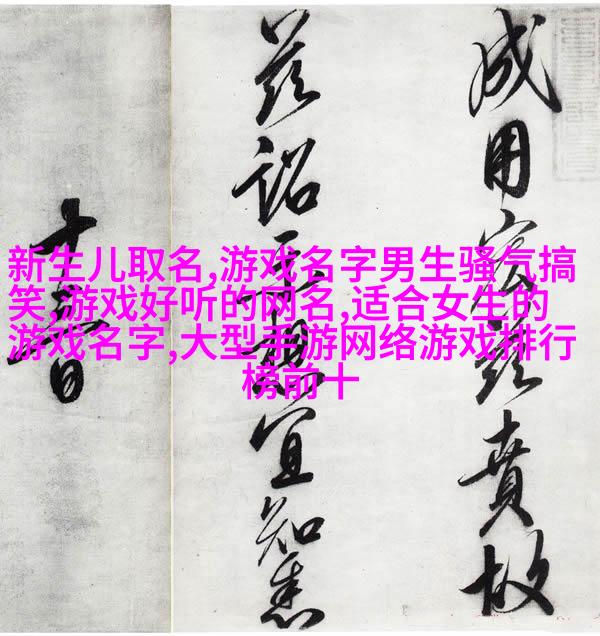 新生儿取名,游戏名字男生骚气搞
笑,游戏好听的网名,适合女生的
游戏名字,大型手游网络游戏排行
榜前十
成用宏頒賚故
茲詔示想宜知悉
十日